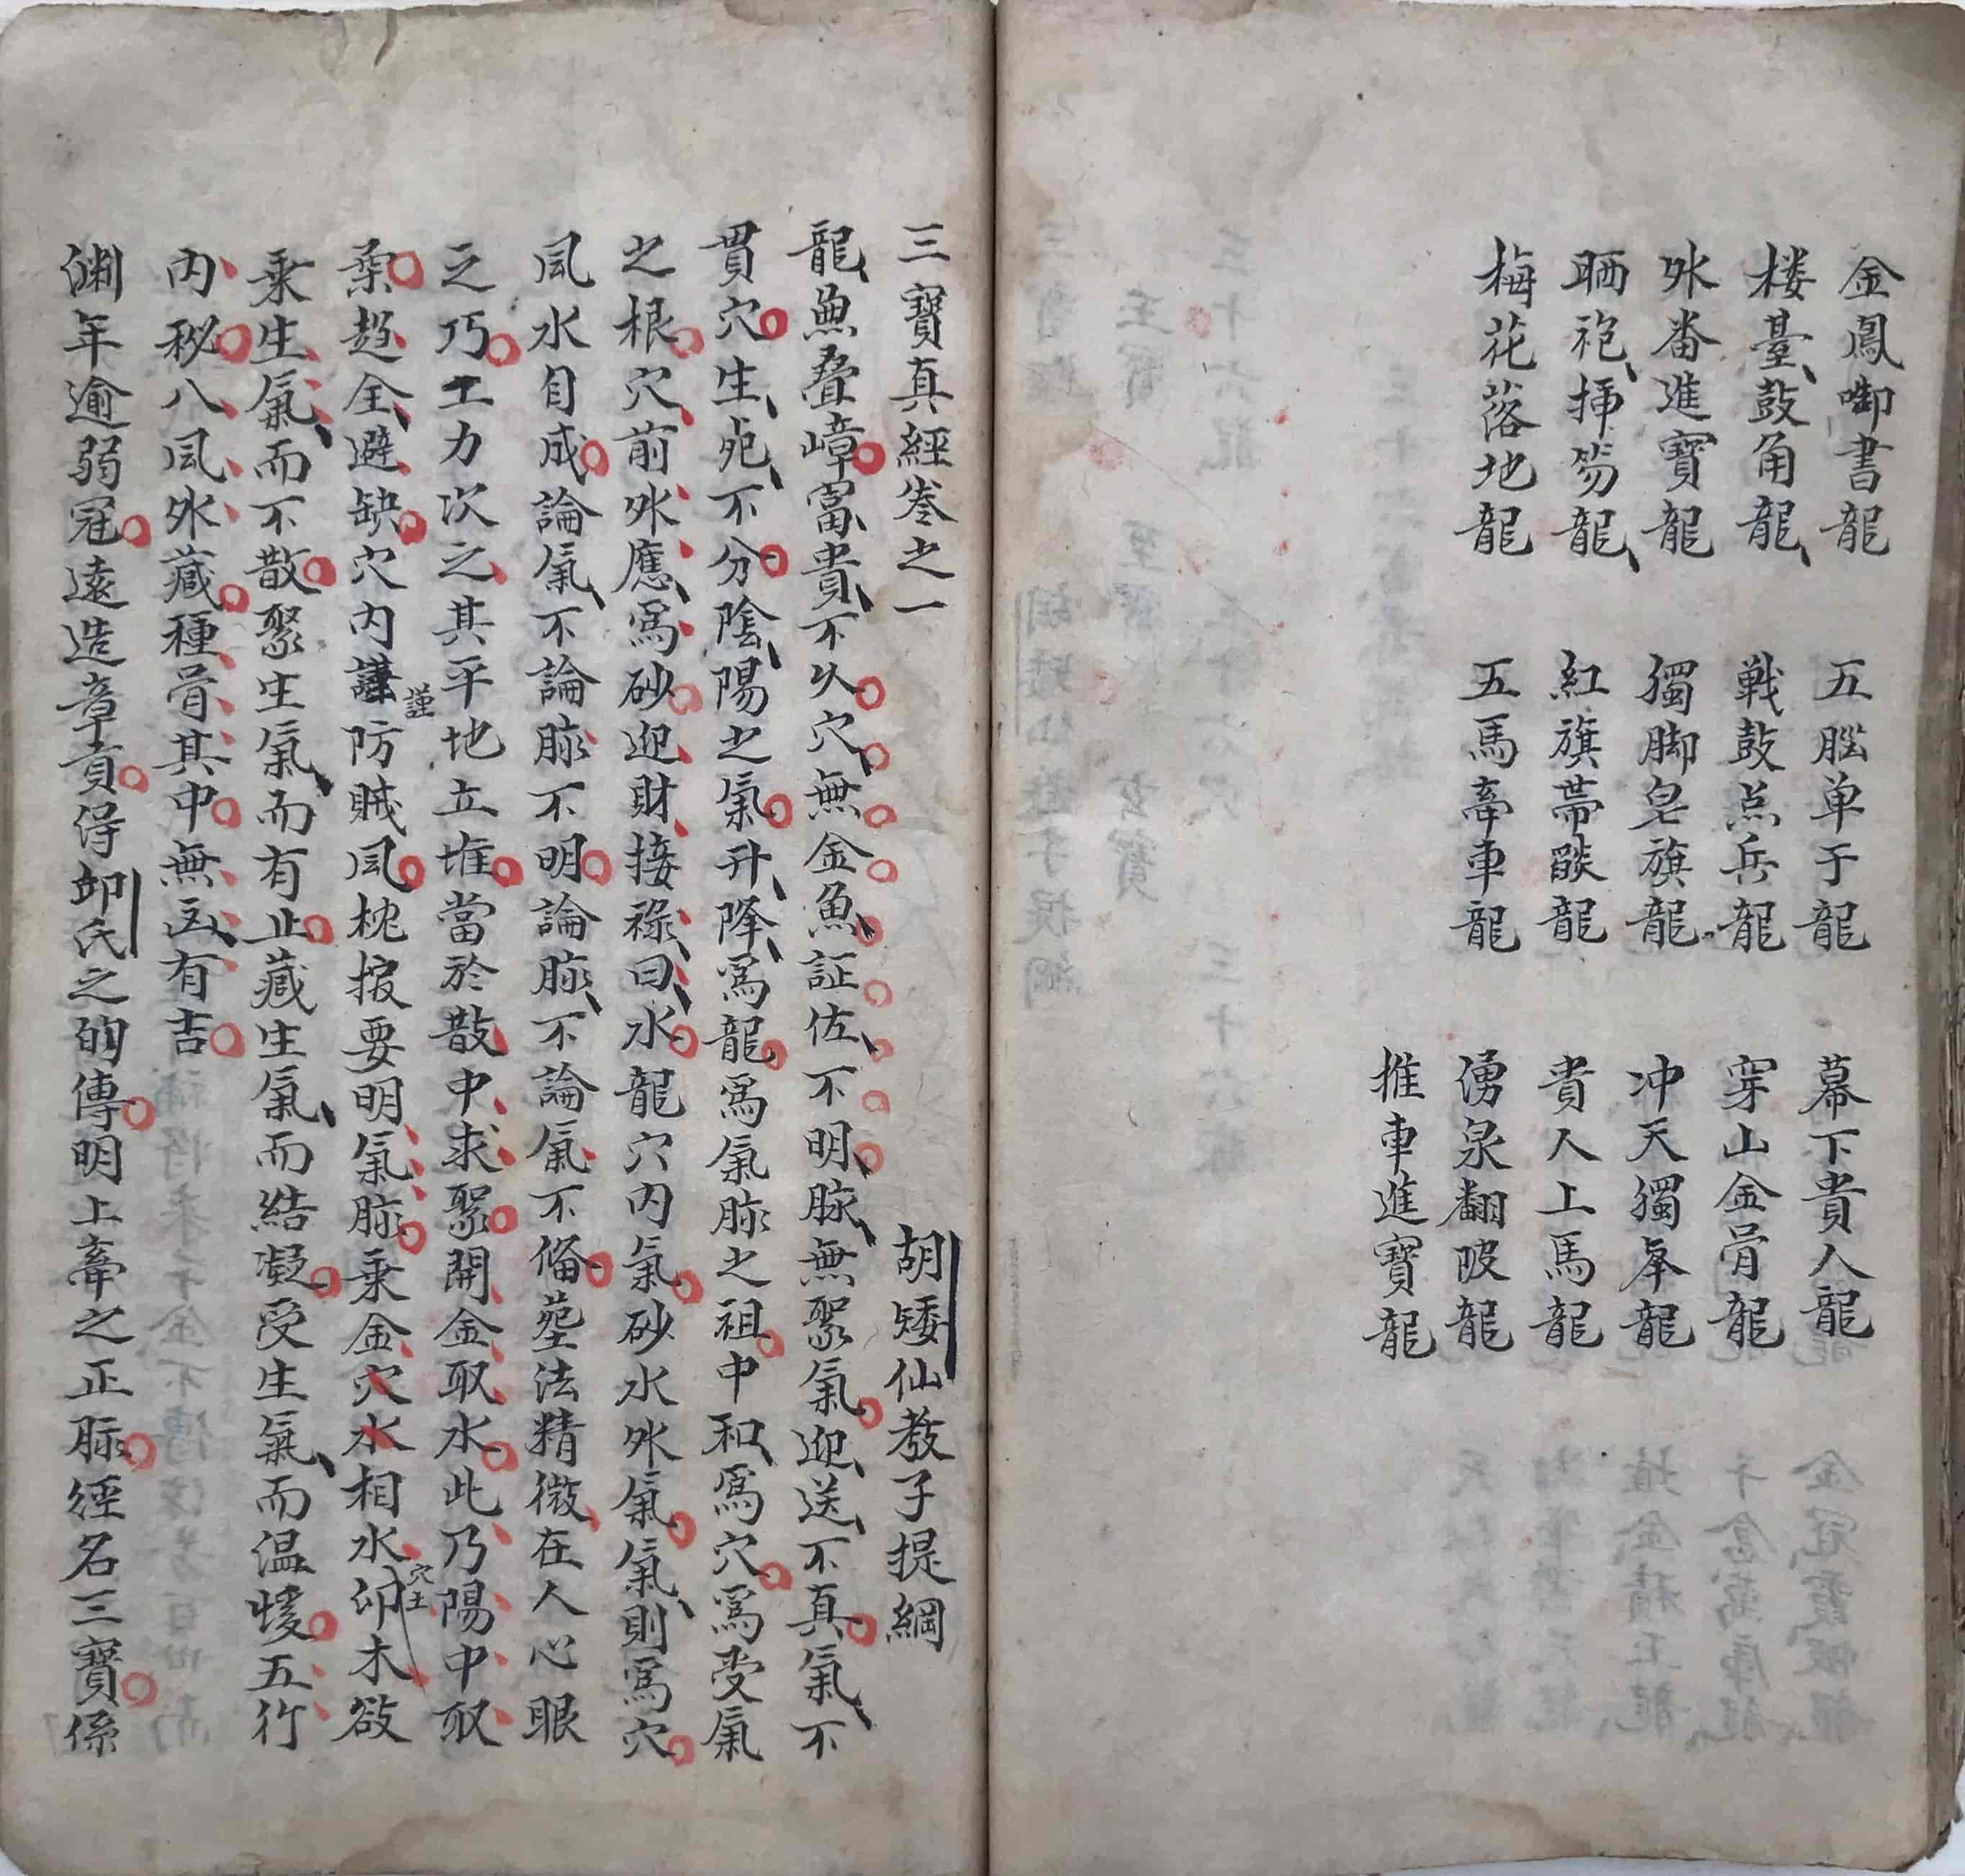 金鳳啣書龍　五腦单于龍　幕下貴人龍
楼臺鼓角龍　戰鼓点兵龍　穿山金骨龍
外番進寶龍　獨脚皂旗龍　冲天獨峯龍
晒袍掃笏龍　紅旗帶燄龍　貴人上馬龍
梅花落地龍　五馬牽車龍　湧泉翻波龍
推車進寶龍
三寶真經卷之一
胡矮仙教子提綱
龍無叠嶂富貴不久穴無金魚証佐不明脉無聚氣迎送不真氣不
貫穴生死不分陰陽之氣升降為龍為氣脉之祖中和為穴為受氣
之根穴前外應為砂迎財接祿曰水龍穴内氣砂水外氣氣則為穴
風水自成論氣不論脉不明論脉不論氣不俻塟法精微在人心眼
之巧工力次之其平地立堆當於散中求聚開金取水此乃陽中取
柔趋全避缺穴内謹防賊風枕按要明氣脉乘金穴水相水穴土卯木欲
乘生氣而不散聚生氣而有止藏生氣而結凝受生氣而温煖五行
内秘八風外藏種骨其中無凶有吉
渊年逾弱冠遠造章貢得卯氏之的傳明上牽之正脉經名三寶係